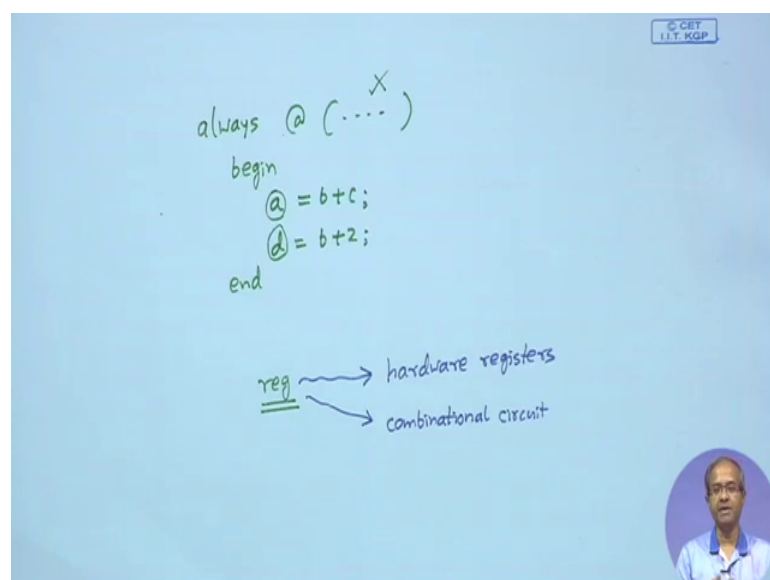 © CET
I.I.T. KGP
always @ (....)
X
begin
a = b+c;
d = b+2;
end
reg
hardware registers
combinational circuit